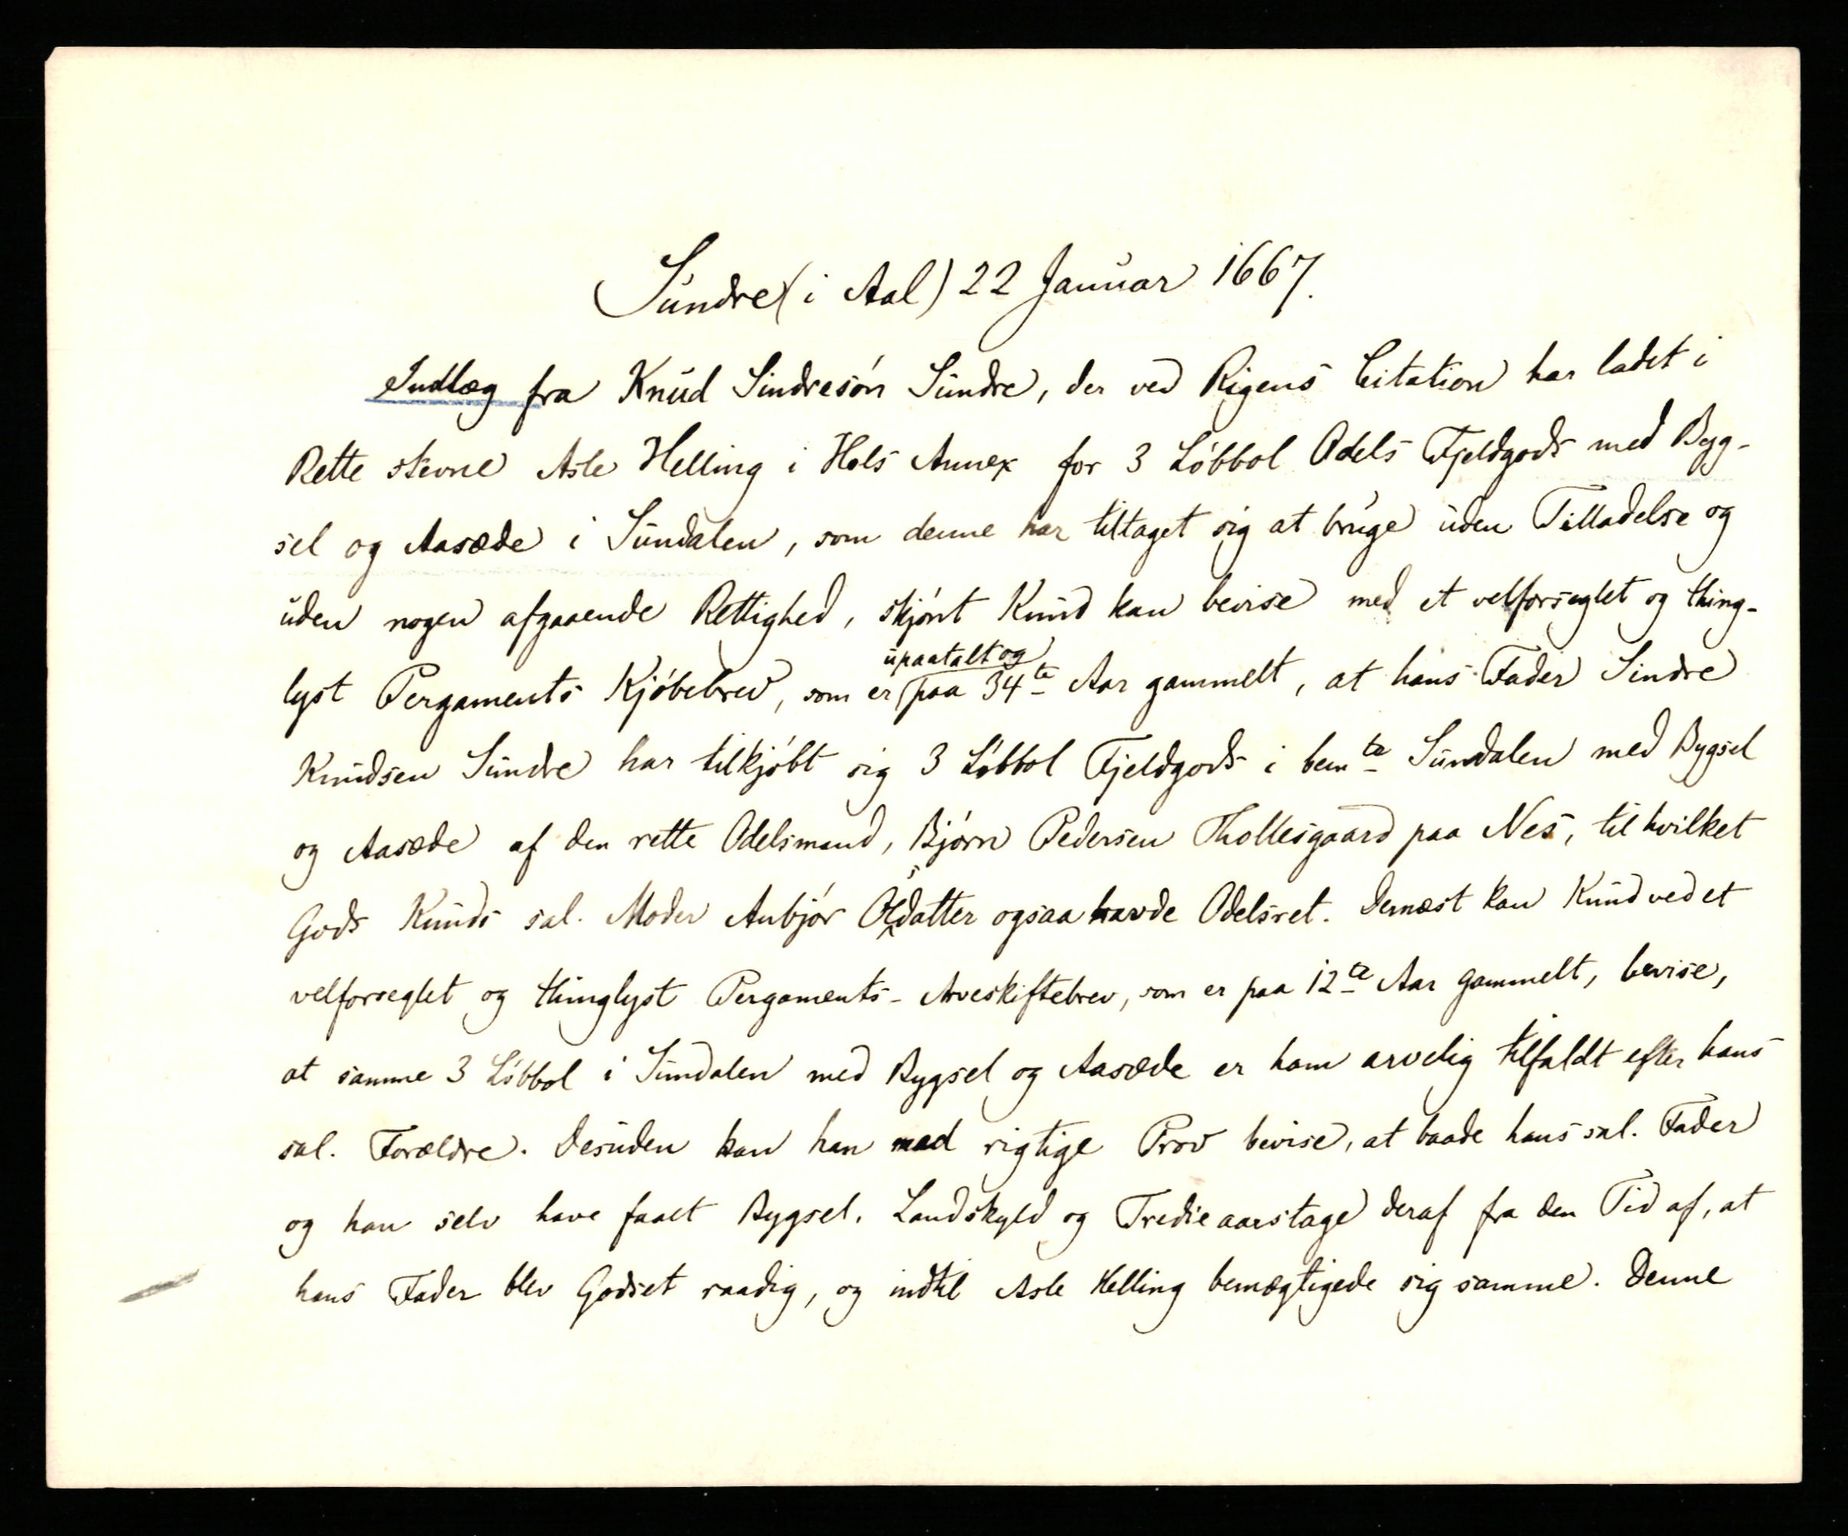 Sundre (i Aal) 22 Januar 1667.
Indlæg fra Knud Sindresón Sundre, der ved Rigens Citation har ladet i
Rette stevne Asle Helling i Hols Annex for 3 Lóbbol Odels Fjeldgods med Byg-
sel og Aasæde i Sundalen, som denne har tiltaget sig at bruge uden Tilladelse og
uden nogen afgaaende Rettighed, skjónt Knud kan bevise med et velforseglet og thing-
upaatalt og
lyst Pergaments Kjóbebrev, som er paa 34te Aar gammelt, at hans Fader Sindre
Knudsen Sundre har tilkjóbt sig 3 Lóbbol Fjeldgods i bemte Sundalen med Bygsel
og Aasæde af den rette Odelsmand, Bjórn Pedersen Thollesgaard paa Nes, til hvilket
Gods Knuds sal. Moder Anbjór Olsdatter ogsaa havde Odelsret. Dernæst kan Knud ved et
velforseglet og thinglyst Pergaments-Arveskiftebrev, som er paa 12te Aar gammelt, bevise,
at samme 3 Lóbbol i Sundalen med Bygsel og Aasæde er ham arvelig tilfaldt efter hans
sal. Forældre. Desuden kan han med rigtige Prov bevise, at baade hans sal. Fader
og han selv have faaet Bygsel, Landskyld og Tredieaarstage deraf fra den Tid af, at
hans Fader blev Godset raadig, og indtil Asle Helling bemægtigede sig samme. Denne